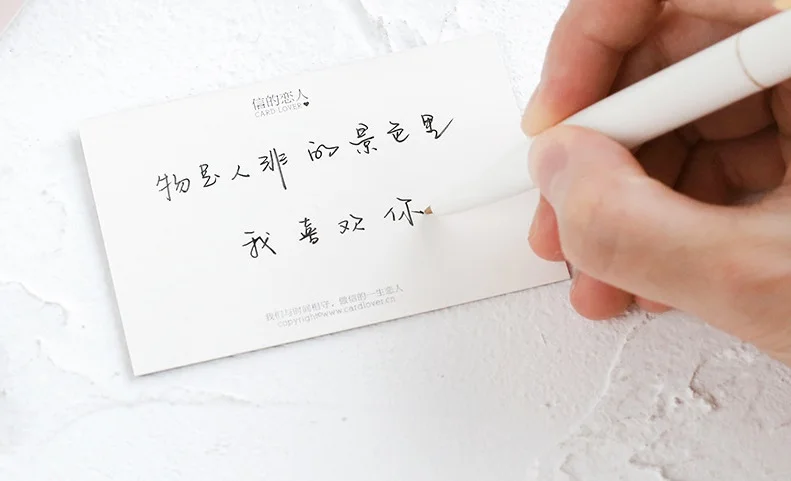 信的恋人
CARD LOVER♥
物是人非的景色里
我喜欢你
我们与时间相守，做信的一生恋人
copyright©www.cardlover.cn